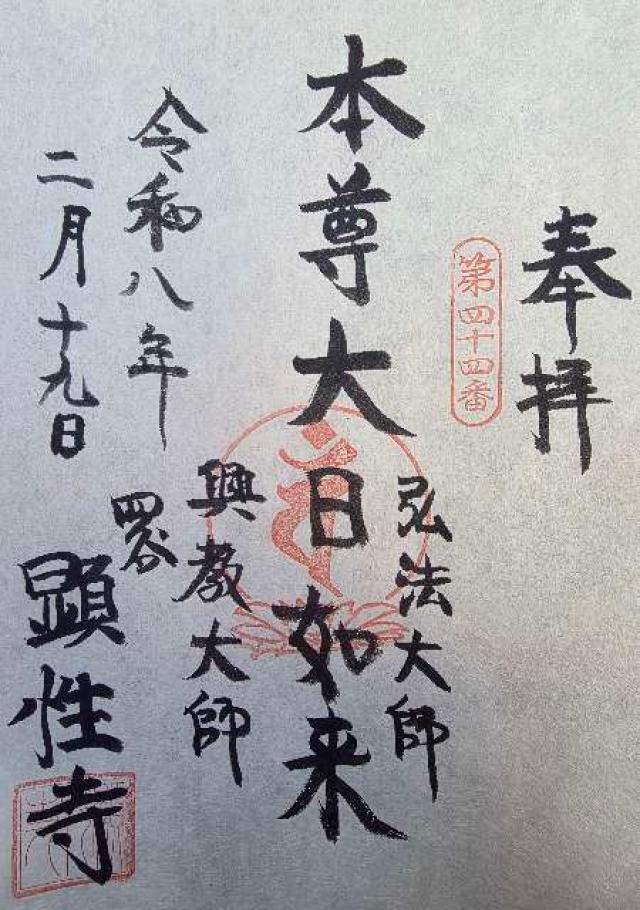 奉拝
第四十四番
弘法大師
本尊大日如来
興教大師
令和八年
二月十九日
四谷
顕性寺